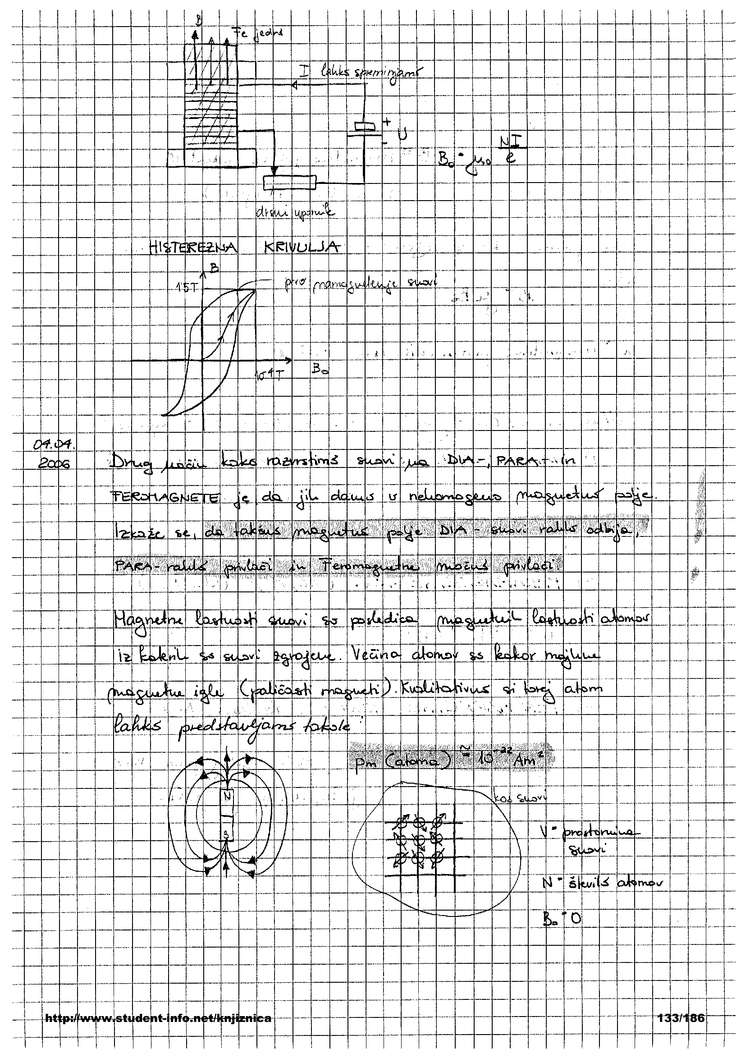 B
Fe jedro
I lahko spreminjamo
+
U
-
B₀ = μ₀ NI/l
drsni upornik
HISTEREZNA KRIVULJA
B
1.5T
prvo namagnetenje snovi
10⁻⁴T
B₀
04.04.
2006
Drug način kako razvrstimo snovi na DIA-, PARA- in
FEROMAGNETE je da jih damo v nehomogeno magnetno polje.
Izkaže se, da takšno magnetno polje DIA-snovi rahlo odbija,
PARA-rahlo privlači in Feromagnetne močno privlači
Magnetne lastnosti snovi so posledica magnetnih lastnosti atomov
iz kakrih so snovi zgrajene. Večina atomov so kakor majhne
magnetne igle (paličasti magneti). Kvalitativno si torej atom
lahko predstavljamo takole:
pm (atoma) ≈ 10⁻²² Am²
N
S
kos snovi
V = prostornina
snovi
N = število atomov
B₀ = 0
http://www.student-info.net/knjiznica
133/186